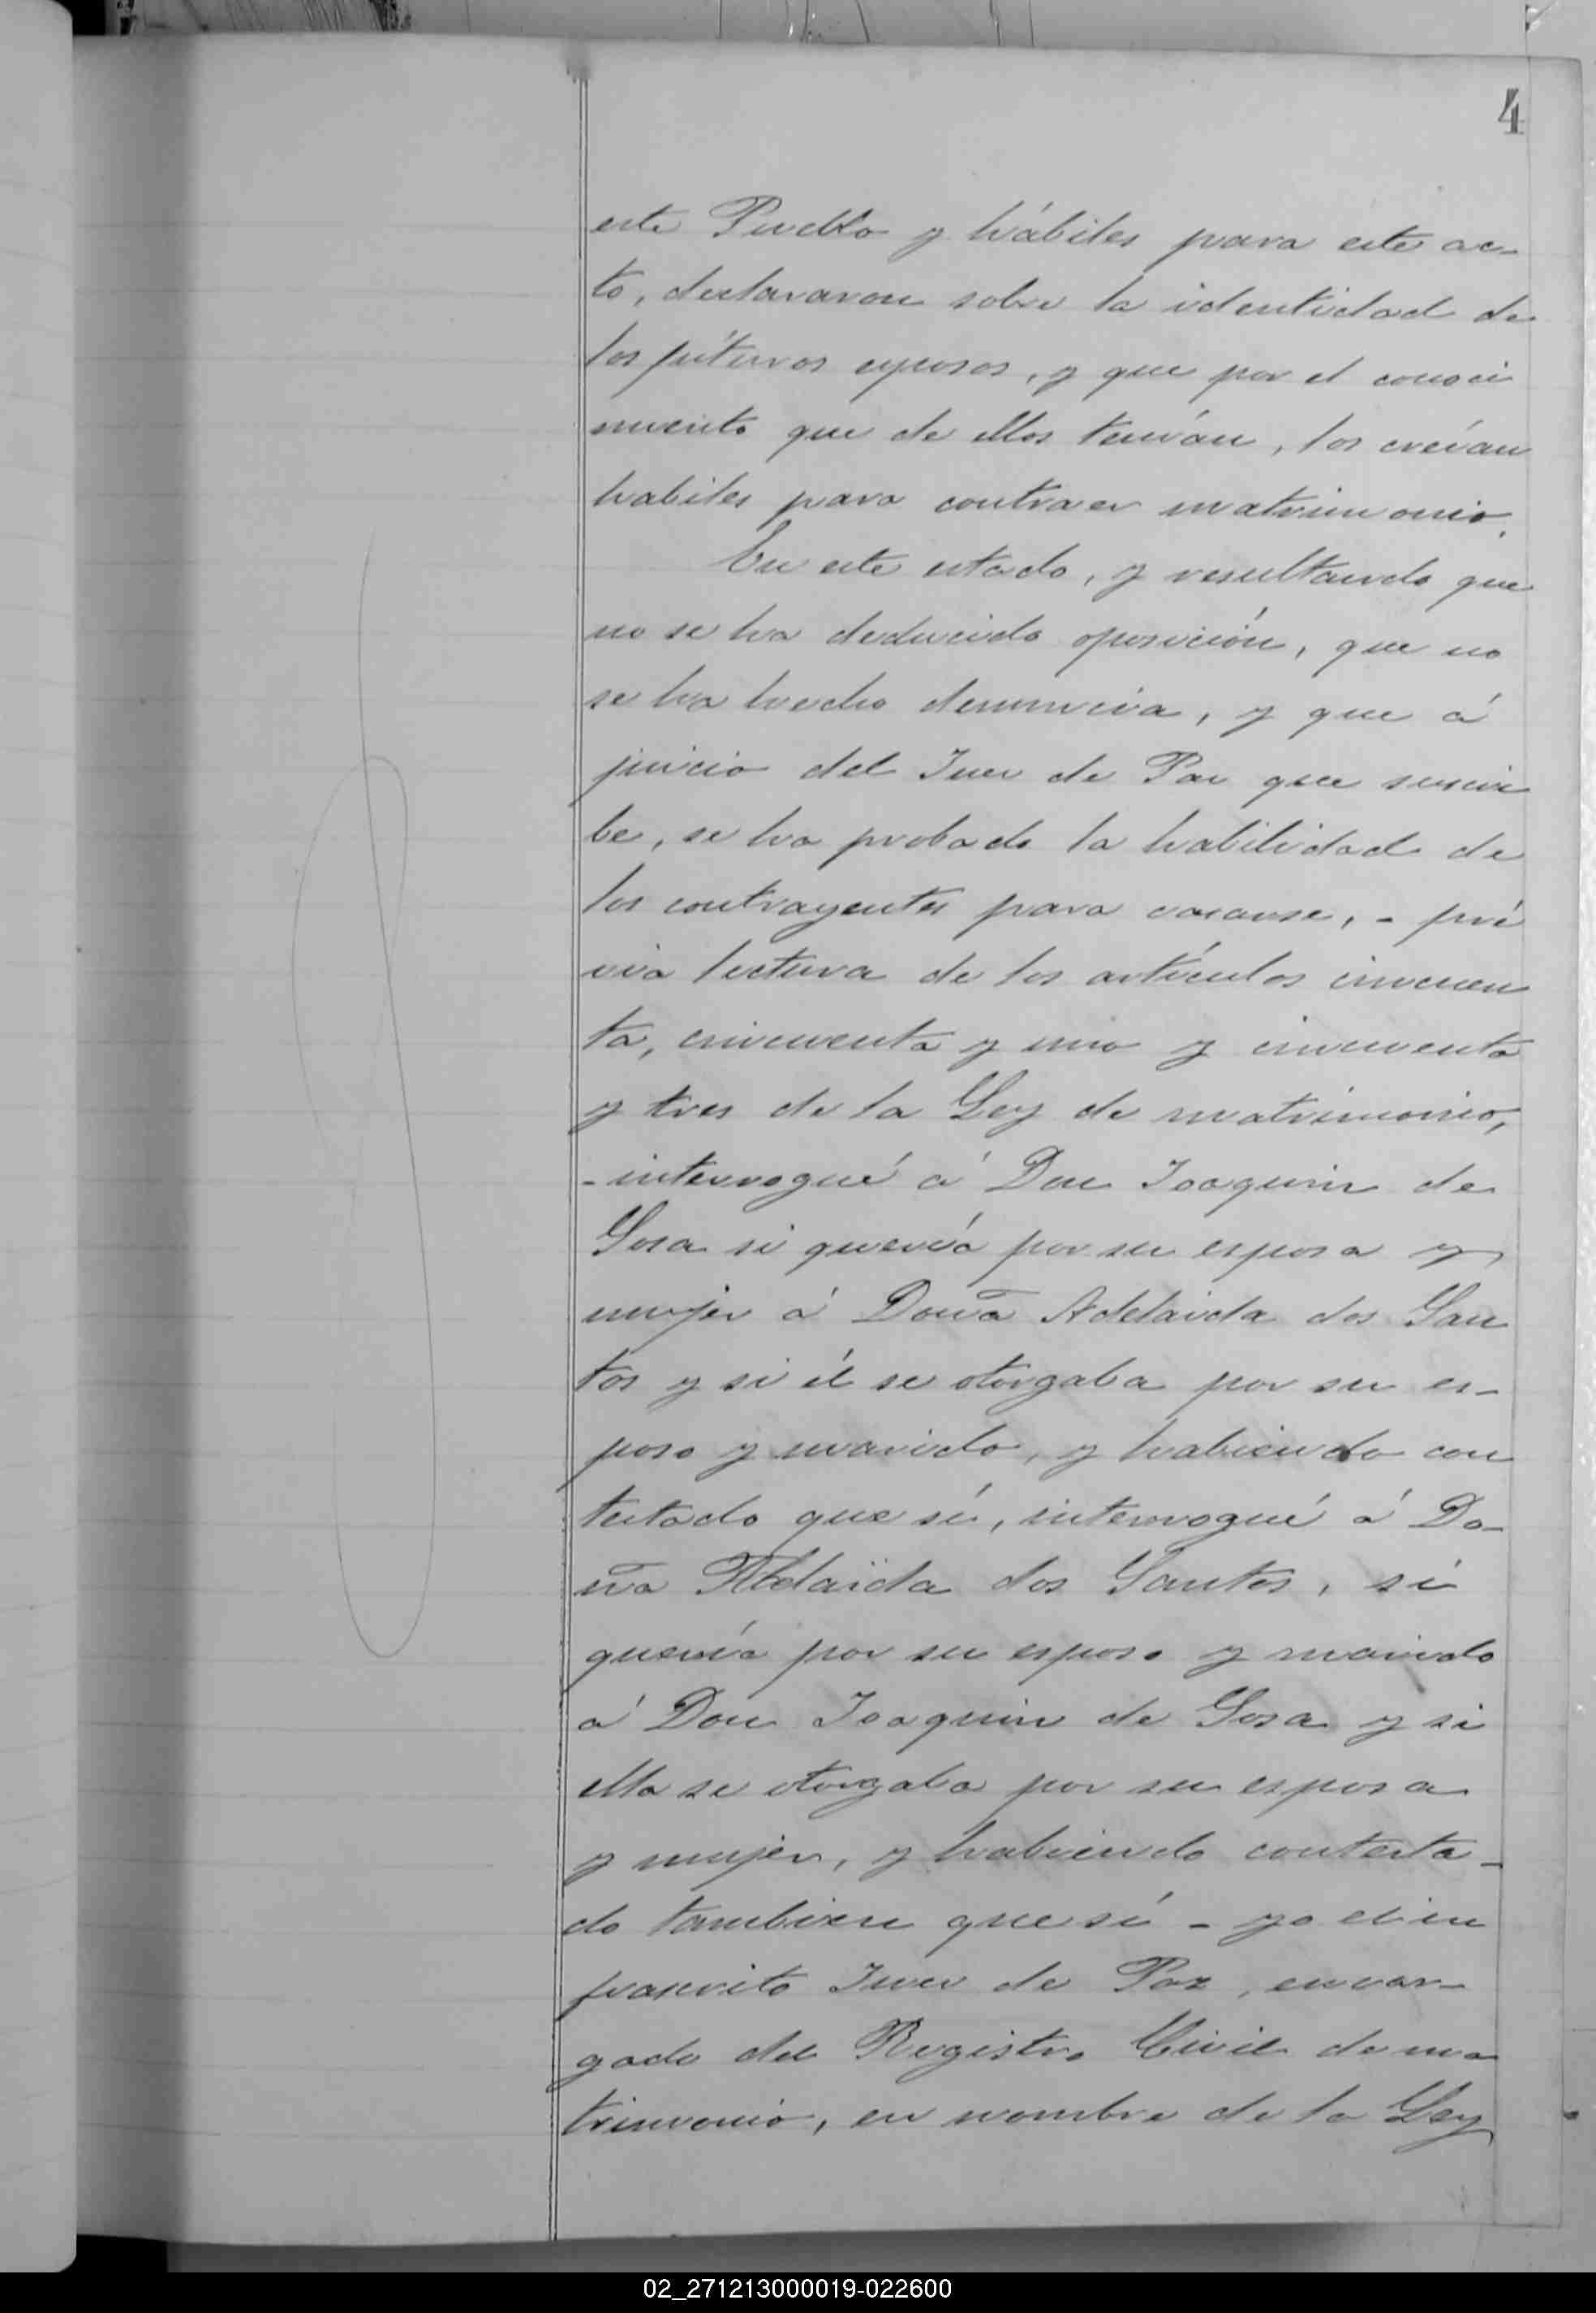 4
este Pueblo y hábiles para este ac-
to, declararon sobre la identidad de
los fúturos esposos, y que por el conoci
miento que de ellos tenían, los creían
habiles para contraer matrimonio.
En este estado, y resultando que
no se ha deducido oposición, que no
se ha hecho denuncia, y que á
juicio del Juez de Paz que suscri
be, se ha probado la habilidad de
los contrayentes para casarse, - pré
via lectura de los artículos cincuen
ta, cincuenta y uno y cincuenta
y tres de la Ley de matrimonio,
- interrogué á Don Joaquin de
Sosa si quería por su esposa y
mujer á Doña Adelaida dos San
tos y si él se otorgaba por su es-
poso y marido, y habiendo con
testado que sí, interrogué á Do-
ña Adelaïda dos Santos, si
quería por su esposo y marido
á Don Joaquin de Sosa y si
ella se otorgaba por su esposa
y mujer, y habiendo contesta-
do tambien que sí - yo el in
frascrito Juez de Paz, encar-
gado del Registro Civil de ma
trimonio, en nombre de la Ley
02_271213000019-022600